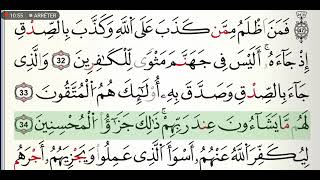 10:55 ARRÊTER
فَمَنْ أَظْلَمُ مِمَّن كَذَبَ عَلَى ٱللَّهِ وَكَذَّبَ بِٱلصِّدْقِ
إِذْ جَآءَهُۥٓ ۚ أَلَيْسَ فِى جَهَنَّمَ مَثْوًى لِّلْكَٰفِرِينَ 32 وَٱلَّذِى
جَآءَ بِٱلصِّدْقِ وَصَدَّقَ بِهِۦٓ ۙ أُو۟لَٰٓئِكَ هُمُ ٱلْمُتَّقُونَ 33
لَهُم مَّا يَشَآءُونَ عِندَ رَبِّهِمْ ۚ ذَٰلِكَ جَزَآءُ ٱلْمُحْسِنِينَ 34
لِيُكَفِّرَ ٱللَّهُ عَنْهُمْ أَسْوَأَ ٱلَّذِى عَمِلُوا۟ وَيَجْزِيَهُمْ أَجْرَهُم